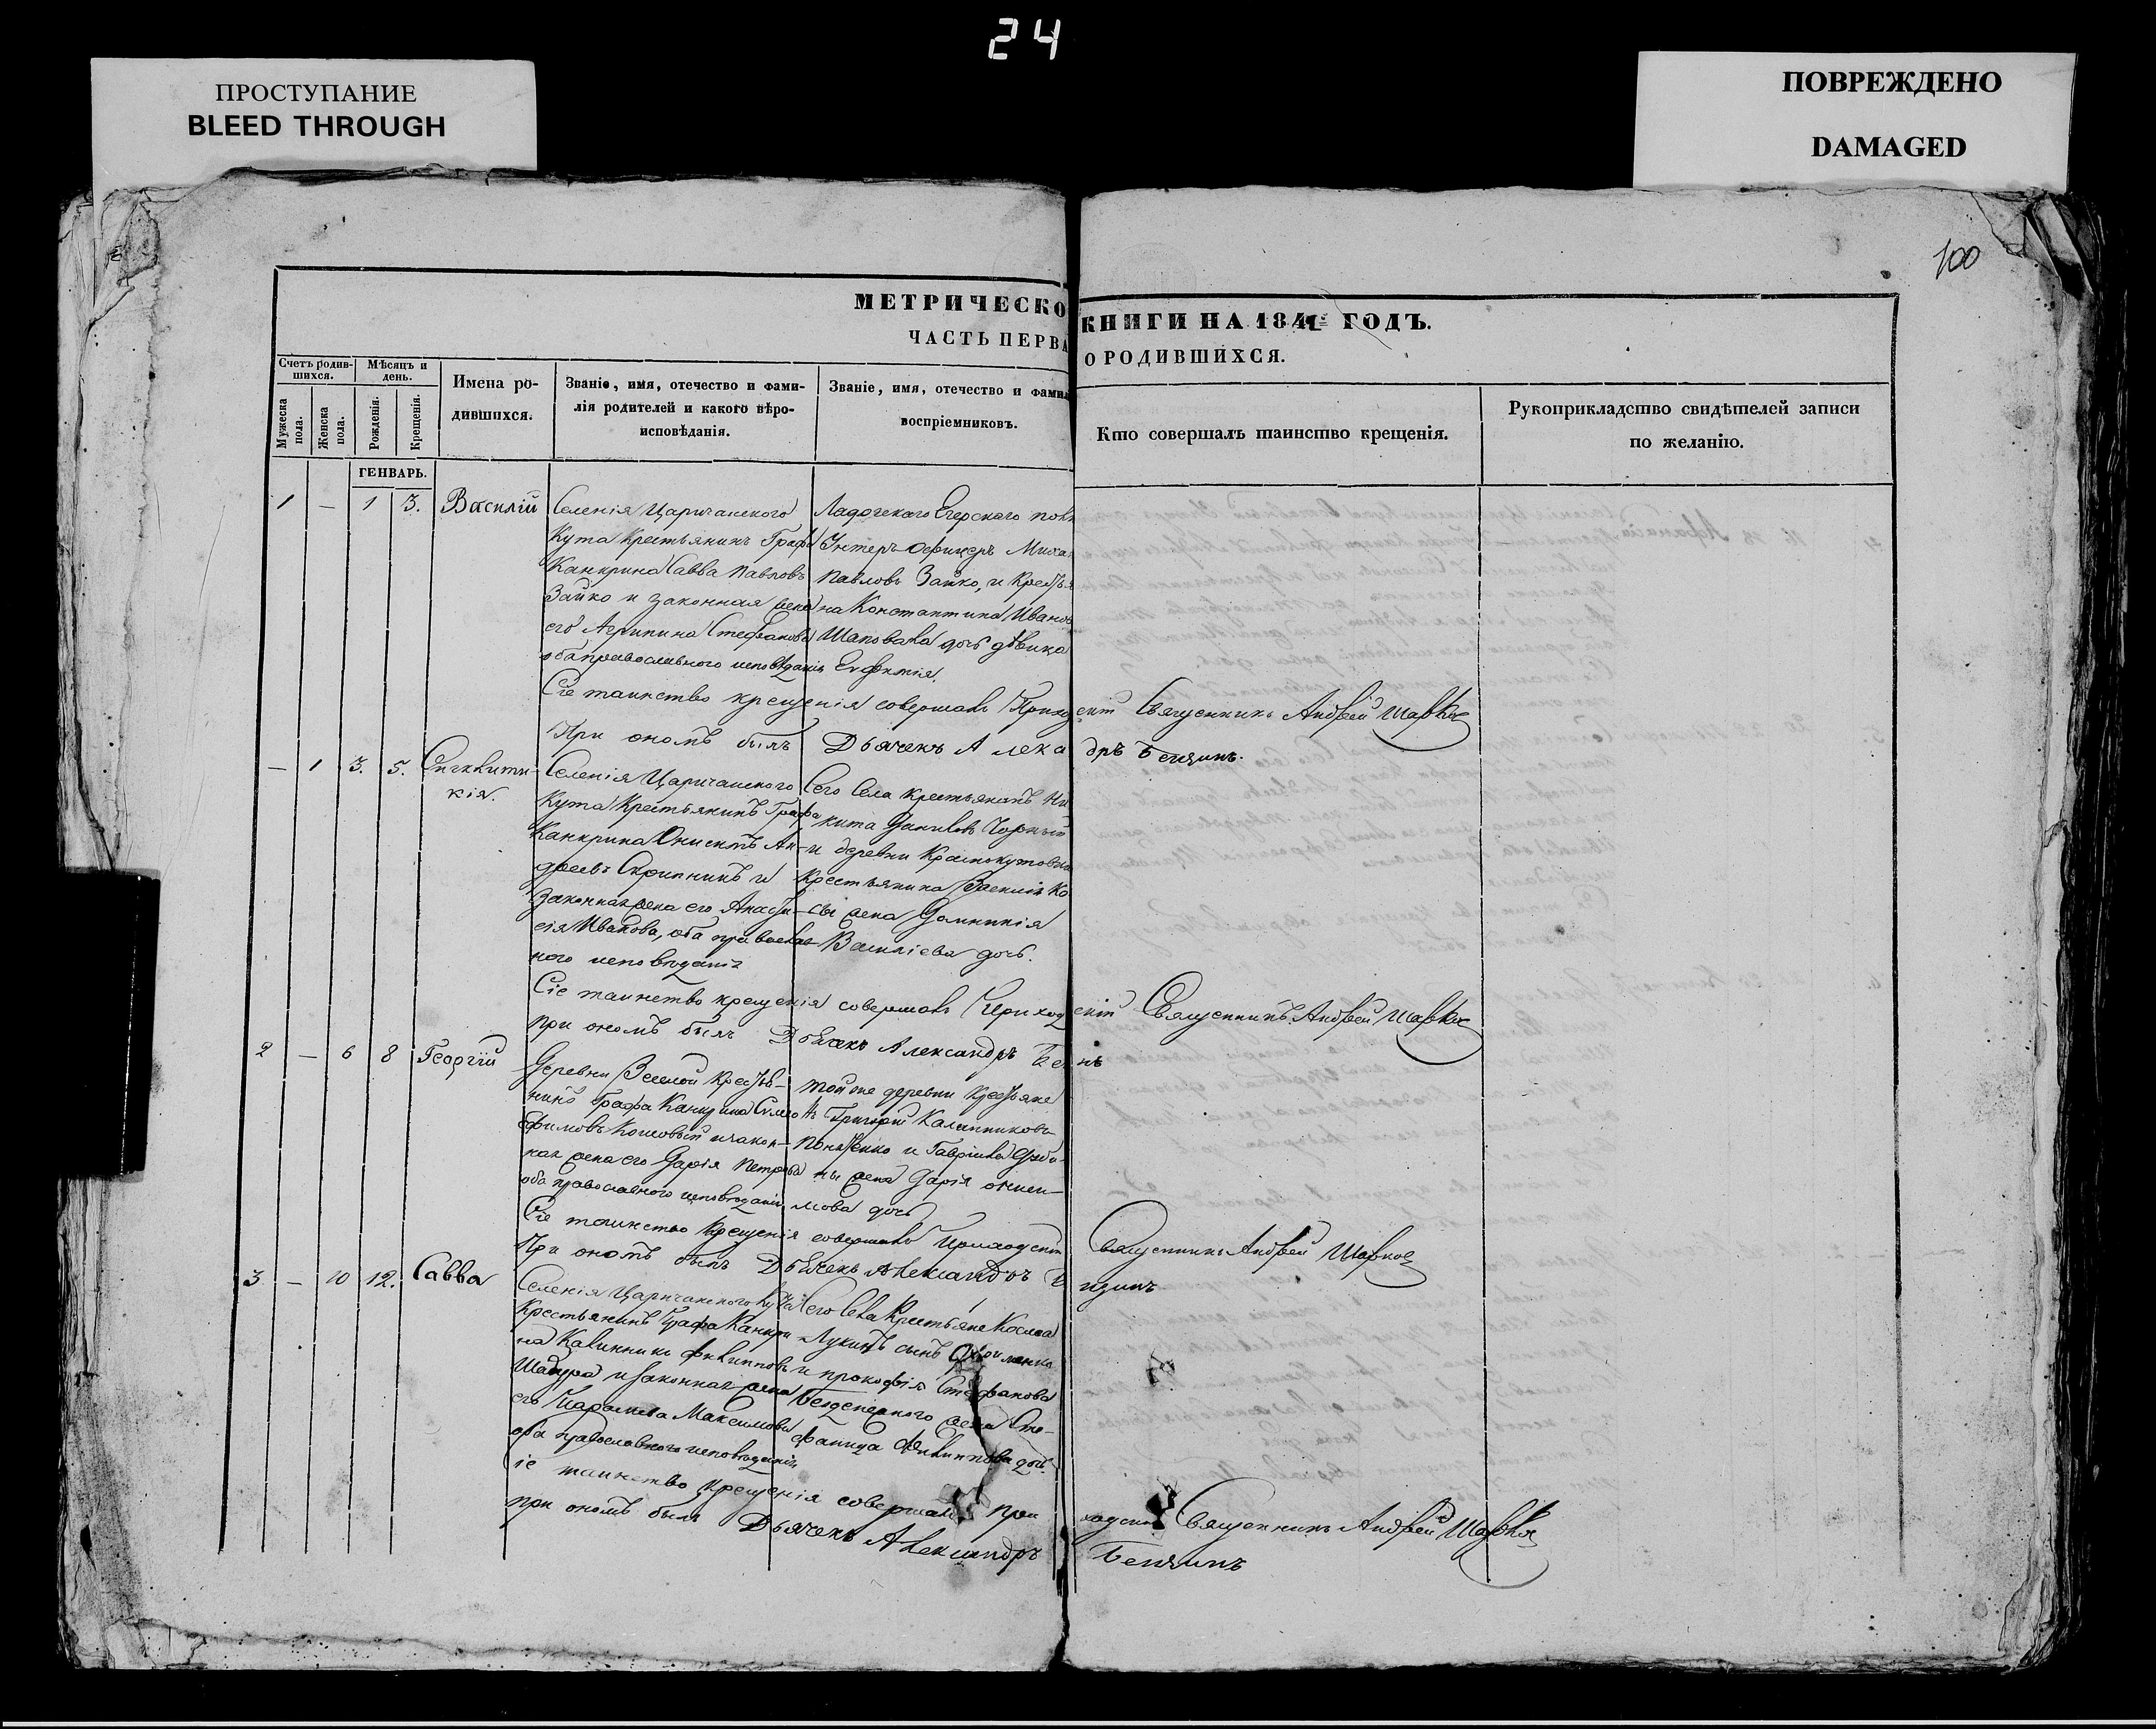 24
ПРОСТУПАНИЕ
BLEED THROUGH
ПОВРЕЖДЕНО
DAMAGED
100
МЕТРИЧЕСКО КНИГИ НА 184 ГОДЪ.
ЧАСТЬ ПЕРВА О РОДИВШИХСЯ.
Счетъ родив-
шихся.
Мужеска
пола.
Женска
пола.
Мѣсяцъ и
день.
Рожденія.
Крещенія.
Имена ро-
дившихся.
Званіе, имя, отечество и фами-
лія родителей и какого вѣро-
исповѣданія.
Званіе, имя, отечество и фами
воспріемниковъ.
Кто совершалъ таинство крещенія.
Рукоприкладство свидѣтелей записи
по желанію.
ГЕНВАРЬ.
1 — 1 3. Василій
Селенія Царичанского
Кута крестьянинъ Графа
Канкрина Савва Павловъ
Зайко и законная жена
его Агрипина Стефанова
оба православного исповѣданія
Ладожскаго Егерскаго полк
Унтеръ-Офицеръ Миха
Павловъ Зайко, и Крестья
на Константина Иванов
Шаповала дочь дѣвица
Евфимія.
Сіе таинство крещенія совершалъ Приход скій Священникъ Андрей
При ономъ былъ Дьячекъ Алекса дръ
— 1 3. 5.
кія.
Селенія Царичанского
Кута Крестьянинъ Графа
Канкрина Онисимъ Ан-
дреевъ Скрипникъ и
законная жена его Анаста-
сія Иванова, оба православ-
ного исповѣданія
Сего Села крестьянинъ Ни
кита Даниловъ Чорный
и деревни Краснокутовки
Крестьянина Василія Ко
сы жена Домникія
Василіева дочь.
Сіе таинство крещенія совершалъ Приход скій Священникъ Андрей
при ономъ былъ Дьячекъ Александръ
2 — 6 8 Георгій
Деревни Веселой Крестья-
нинъ Графа Канкрина
Ефимовъ Кошовый и закон-
ная жена его Дарія Петрова
оба православного исповѣданія
той же деревни Крестьяне
Григорій Калинниковъ
и Гавріила
ны жена Дарія
мова дочь
Сіе таинство Крещенія совершалъ Приходскій Священникъ Андрей
При ономъ былъ Дьячекъ Александръ
3 — 10 12. Савва
Селенія Царичанского Кута
Крестьянинъ Графа Канкри-
на Калинникъ Филипповъ
и законная жена
его Максимова
оба православного исповѣданія
Сего Села Крестьяне Косма
Лукинъ сынъ
и Прокофія Стефанова
жена Сте-
фанида Филиппова дочь.
Сіе таинство крещенія совершалъ При ходскій Священникъ Андрей
при ономъ былъ Дьячекъ Александръ